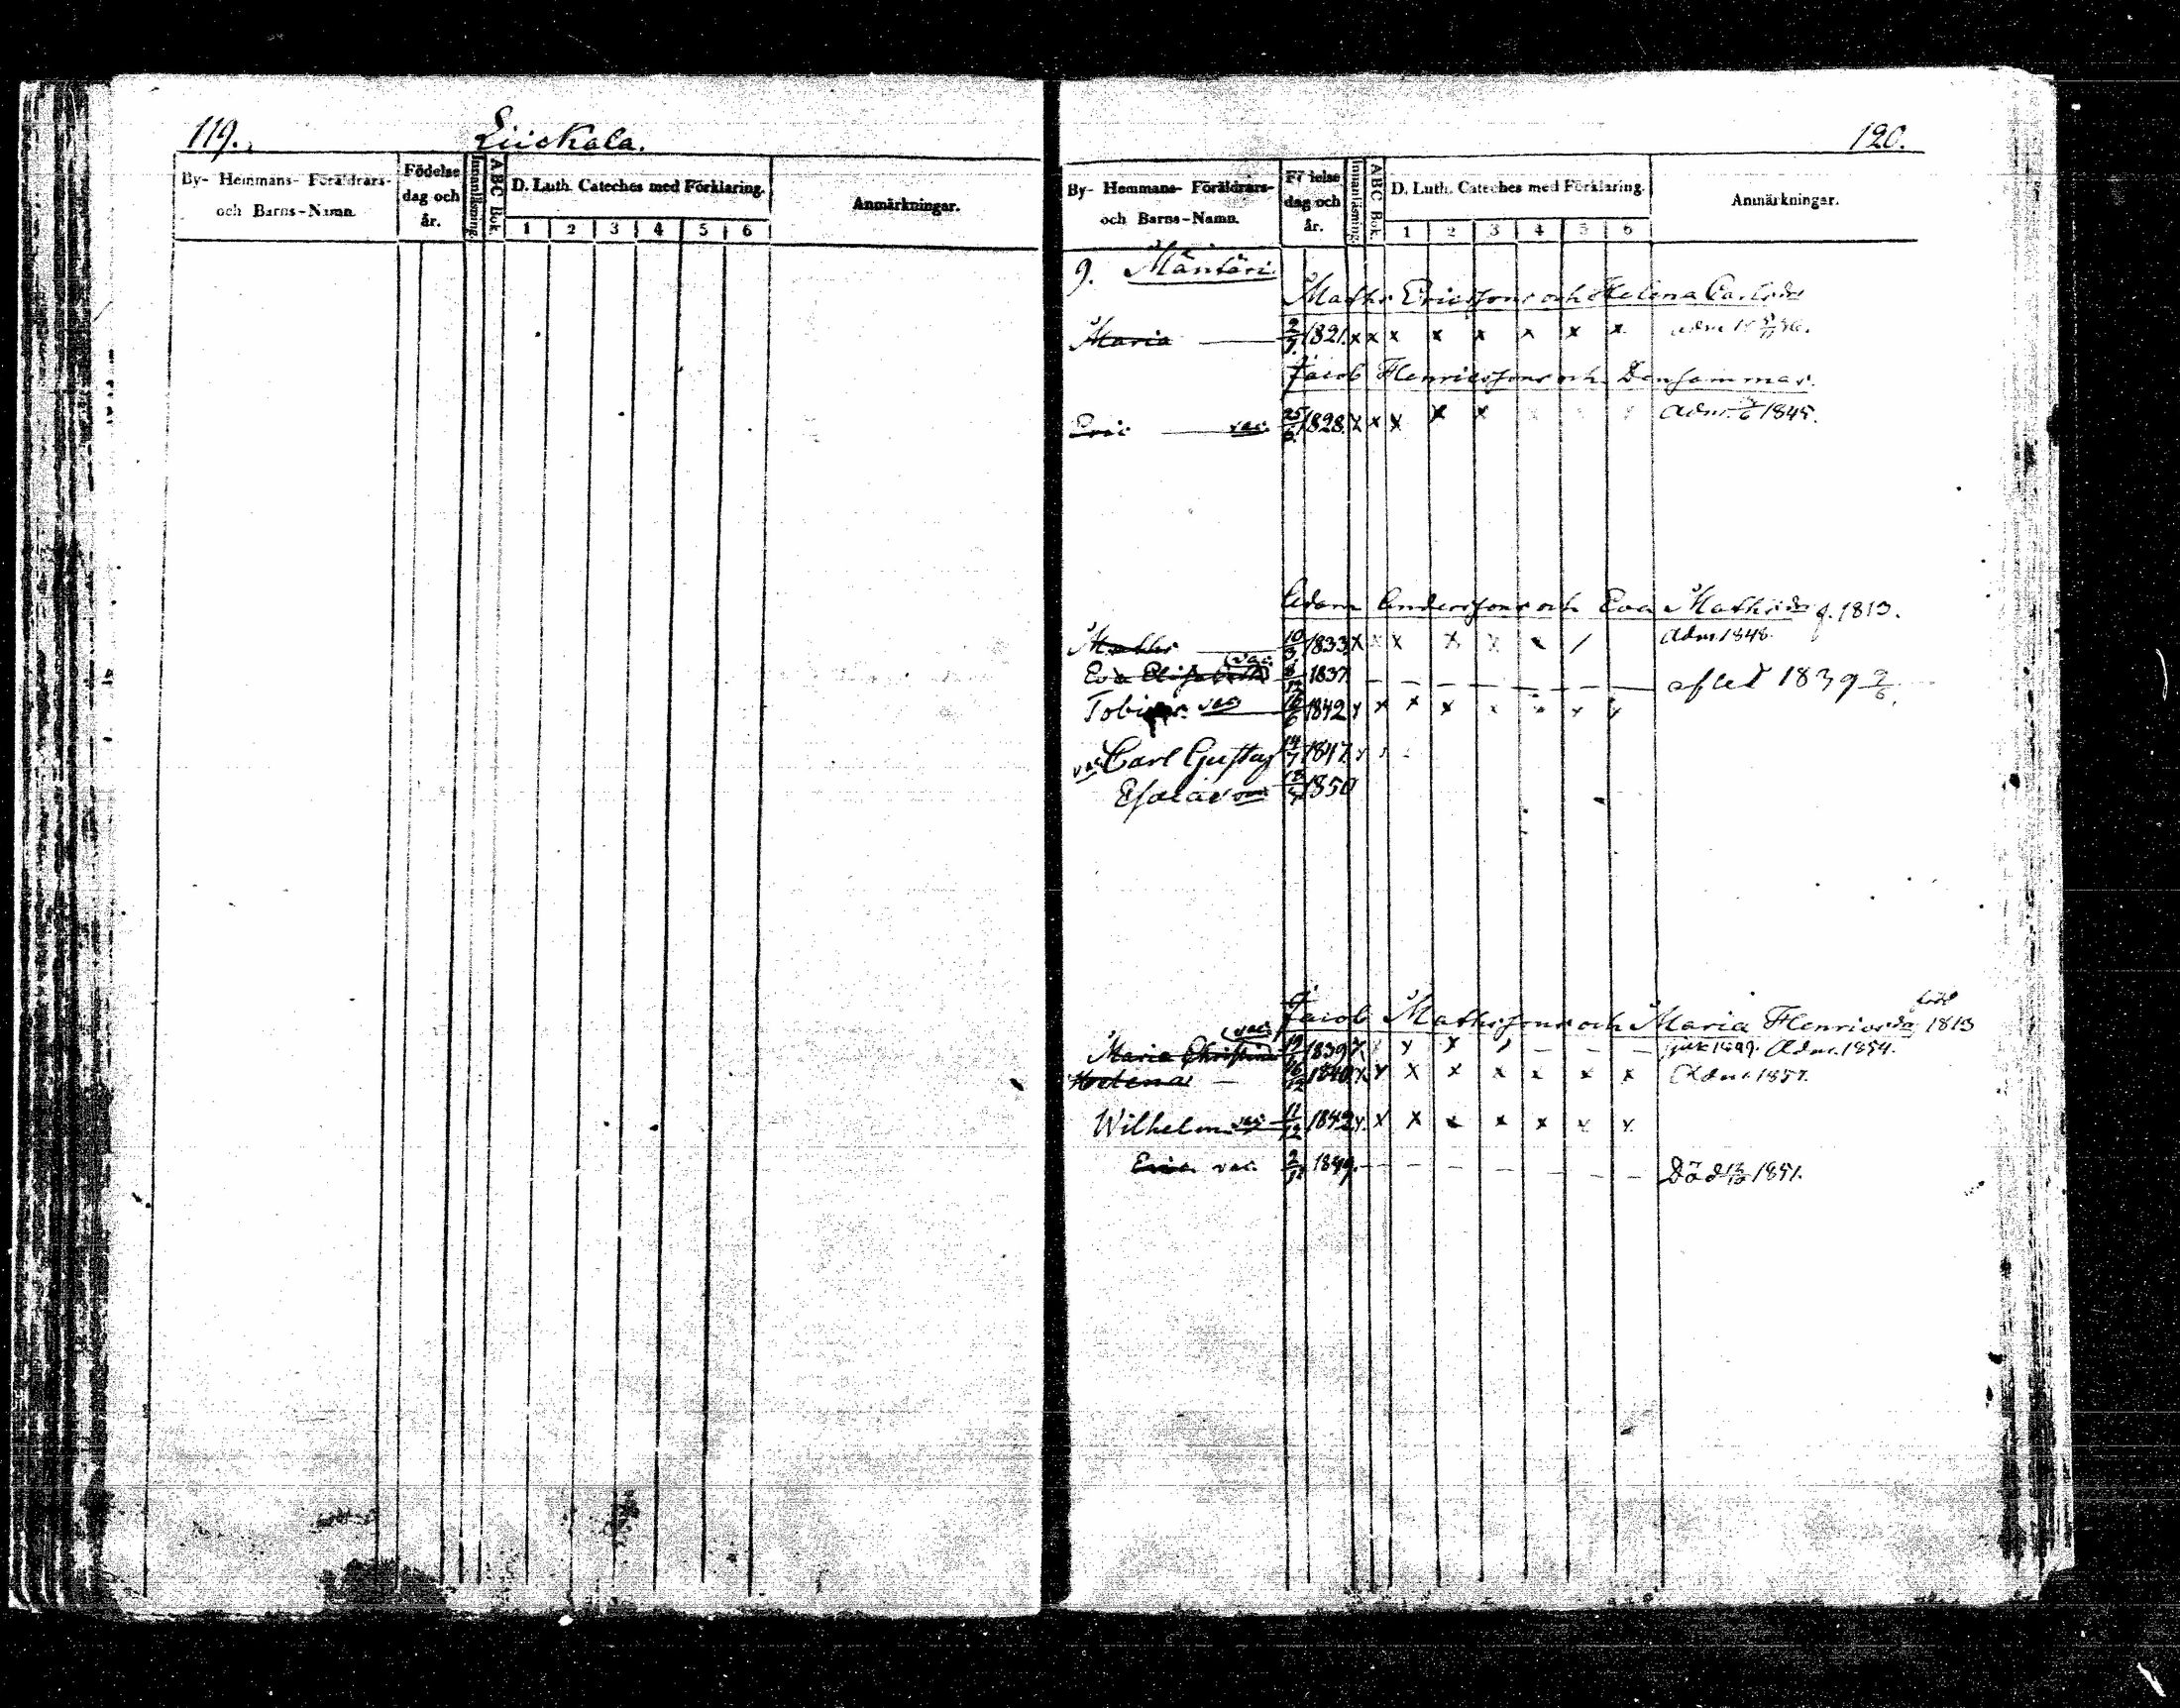 119. Liiskala.
By- Hemmans- Föräldrars- och Barns-Namn.
Födelse dag och år.
Innanläsning.
ABC Bok.
D. Luth. Cateches med Förklaring.
1 2 3 4 5 6
Anmärkningar.
120.
By- Hemmans- Föräldrars- och Barns-Namn.
Födelse dag och år.
Innanläsning.
ABC Bok.
D. Luth. Cateches med Förklaring.
1 2 3 4 5 6
Anmärkningar.
9. Mäntäri.
Maths Ericssons och Helena Carlsdr
Maria 2/7 1821. x x x x x x x x adm
Jacob Henricssons och Densammas.
Eric vac. 25/6 1828. x x x x x adm. 1845.
Adam Anderssons och Eva Mathsdr f. 1813.
Maths 10/3 1833 x x x x x x / adm 1848.
Eva Elisabeth vac. 8/12 1837. aflid 1839 2/6.
Tobias vac 16/6 1842 x x x x x x x x
vac Carl Gustaf 14/7 1847. x
Esaias 1850
Jacob Mathssons och Maria Henricsda född 1813
Maria Christina vac. 1839 x x x Adm. 1854.
Helena 16/12 1840 x x x x x x x x Adm. 1857.
Wilhelm vac 11/12 1842 x x x x x x x x
Erica vac. 1849. Död 1851.